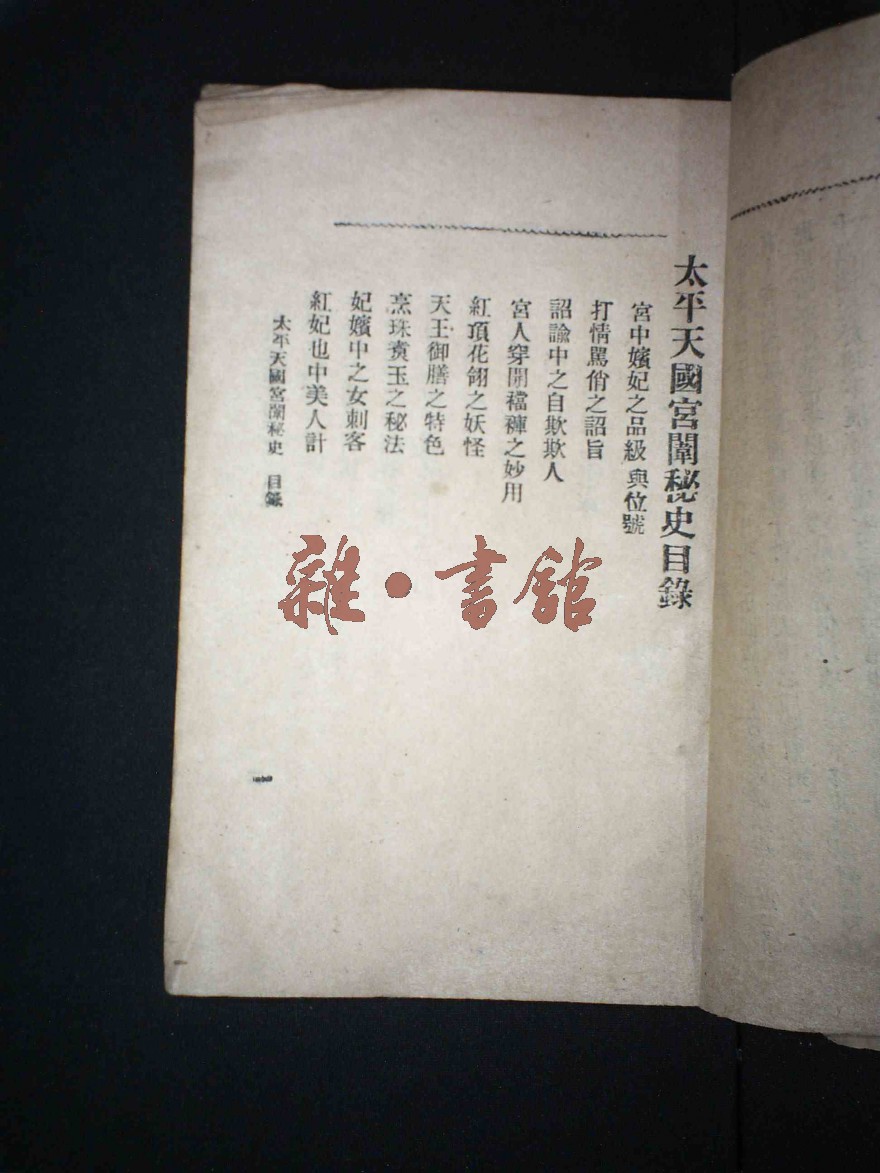 太平天國宮闈秘史目錄
宮中嬪妃之品級與位號
打情罵俏之詔旨
詔諭中之自欺欺人
宮人穿開襠褲之妙用
紅頂花翎之妖怪
天王御膳之特色
烹珠煑玉之秘法
妃嬪中之女刺客
紅妃也中美人計
太平天國宮闈秘史 目錄
一
雜·書館